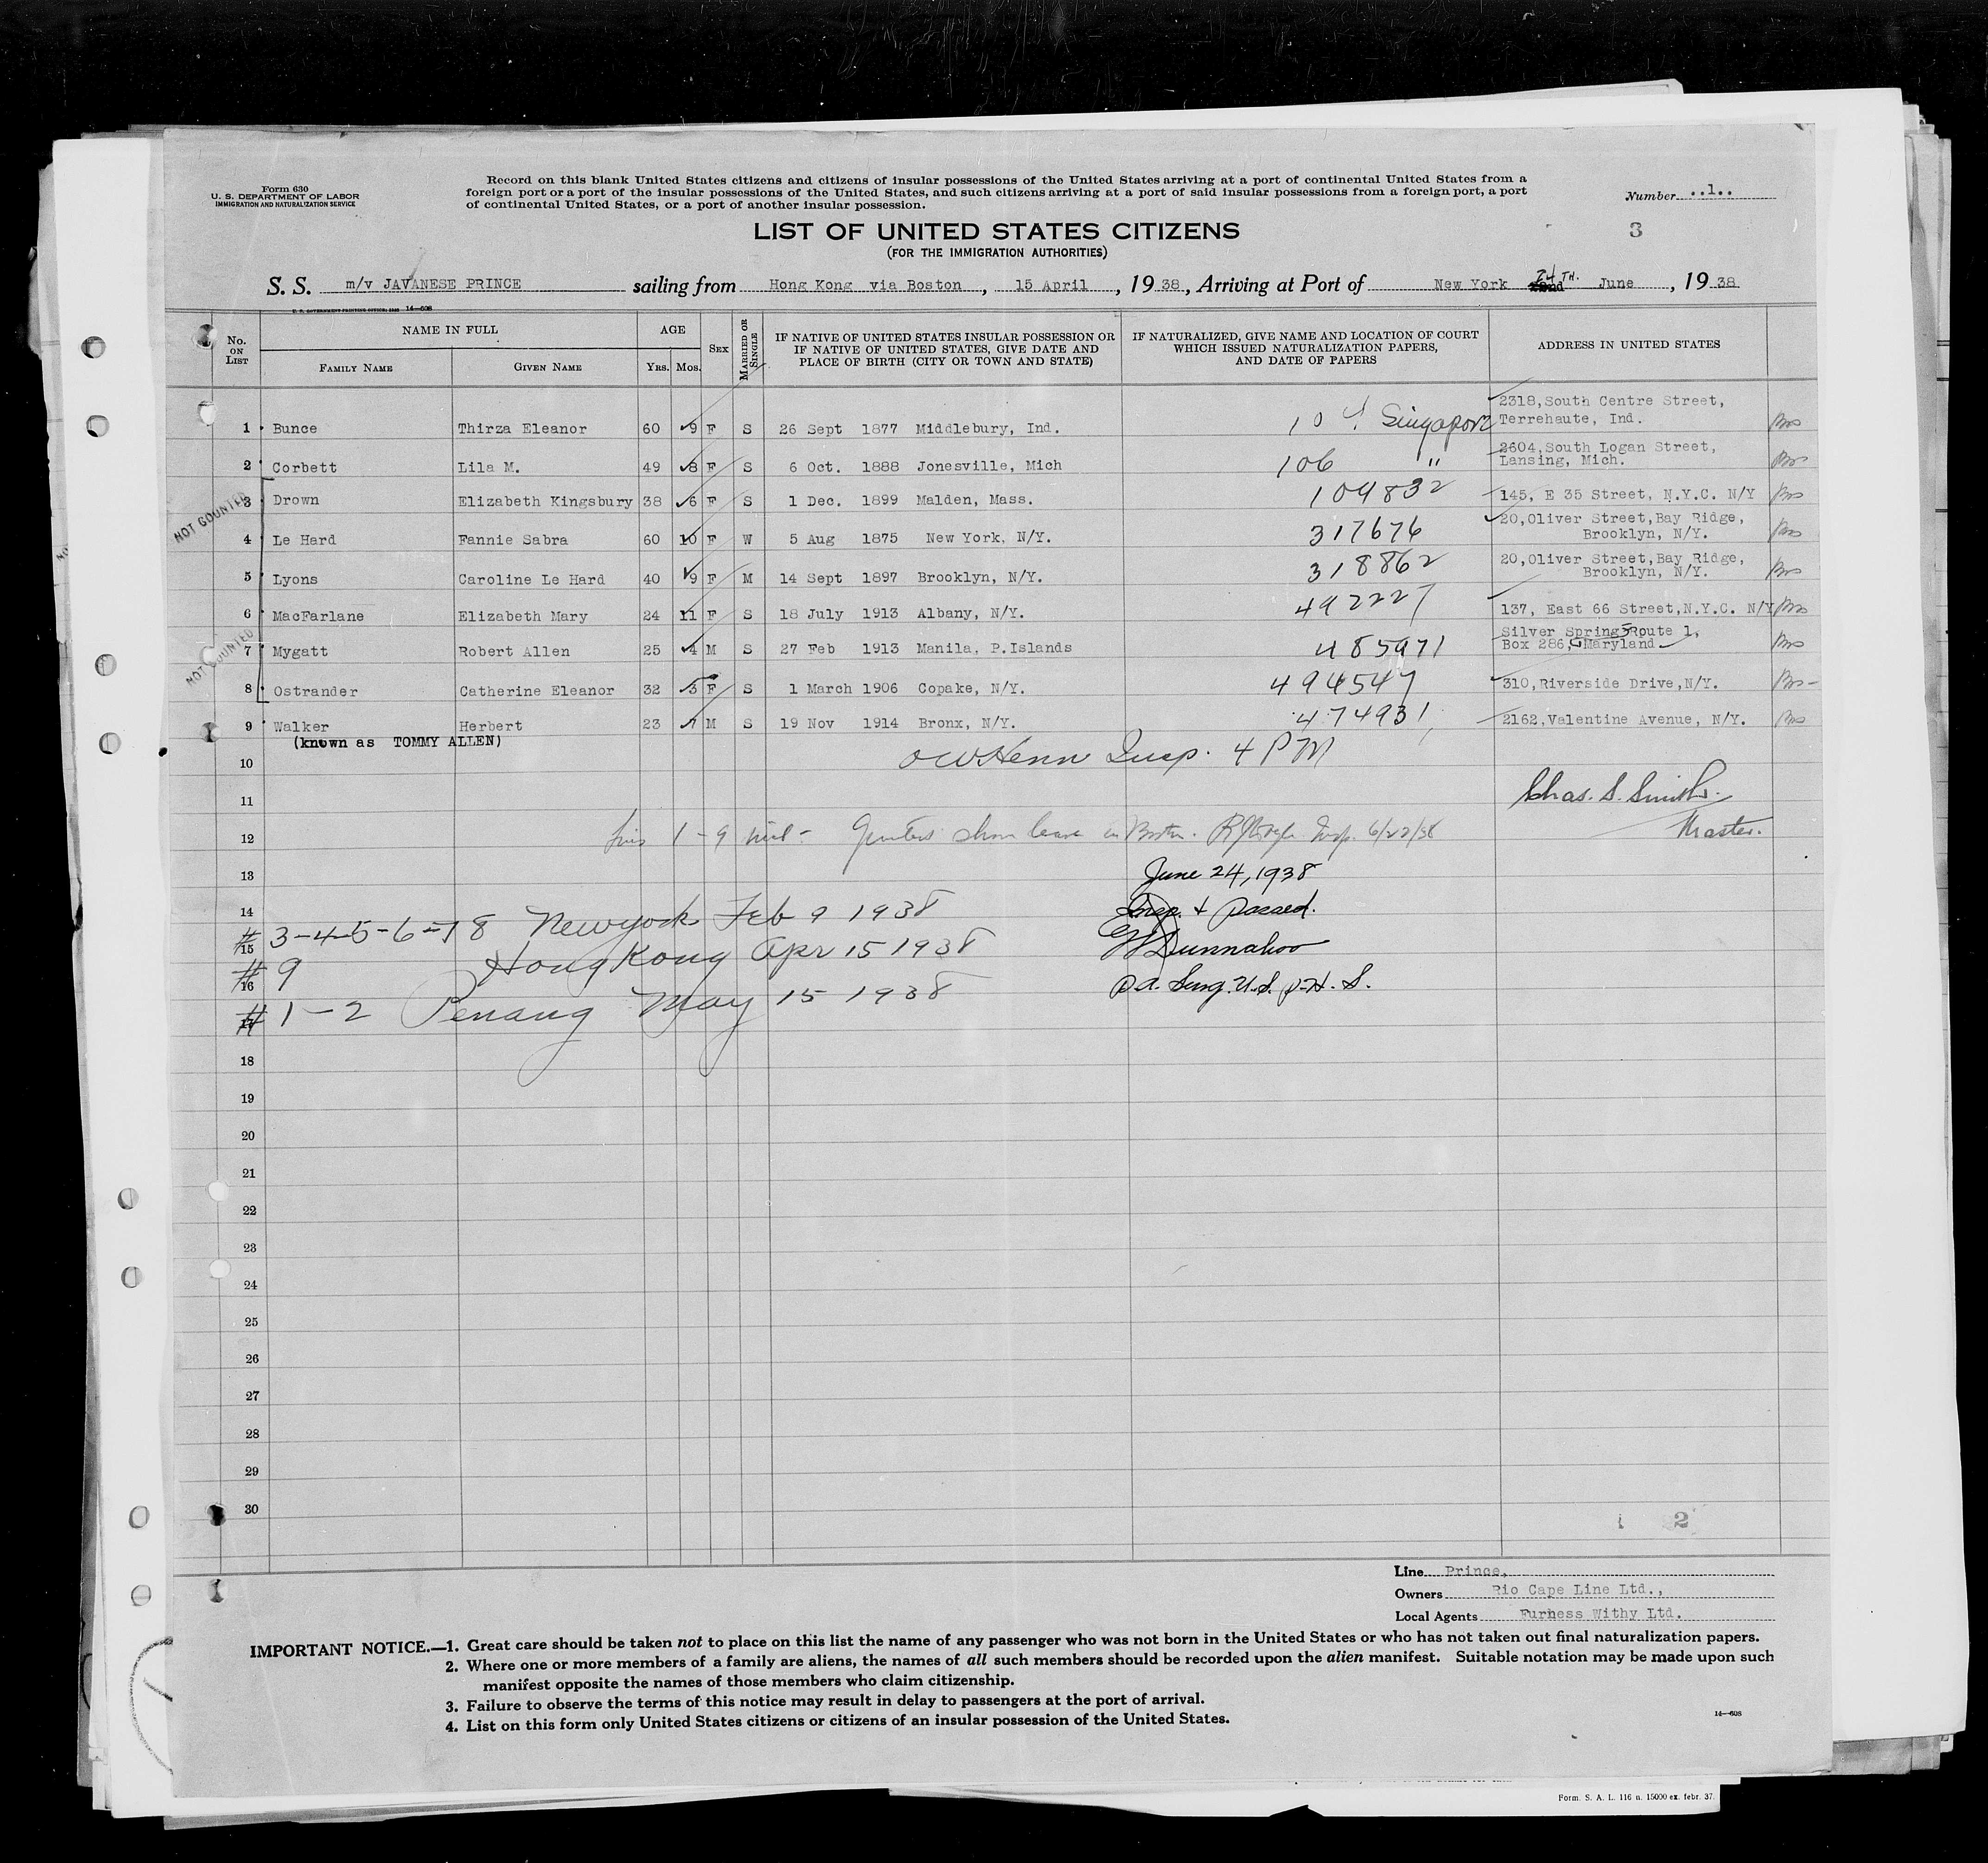 Form 630
U. S. DEPARTMENT OF LABOR
IMMIGRATION AND NATURALIZATION SERVICE
Record on this blank United States citizens and citizens of insular possessions of the United States arriving at a port of continental United States from a
foreign port or a port of the insular possessions of the United States, and such citizens arriving at a port of said insular possessions from a foreign port, a port
of continental United States, or a port of another insular possession.
Number ..1..
LIST OF UNITED STATES CITIZENS
(FOR THE IMMIGRATION AUTHORITIES)
3
S. S. m/v JAVANESE PRINCE sailing from Hong Kong via Boston, 15 April, 1938, Arriving at Port of New York 24TH. June, 1938
U. S. GOVERNMENT PRINTING OFFICE 14—608
No. ON LIST
NAME IN FULL
FAMILY NAME
GIVEN NAME
AGE
YRS. MOS.
SEX
MARRIED OR SINGLE
IF NATIVE OF UNITED STATES INSULAR POSSESSION OR
IF NATIVE OF UNITED STATES, GIVE DATE AND
PLACE OF BIRTH (CITY OR TOWN AND STATE)
IF NATURALIZED, GIVE NAME AND LOCATION OF COURT
WHICH ISSUED NATURALIZATION PAPERS,
AND DATE OF PAPERS
ADDRESS IN UNITED STATES
1 Bunce Thirza Eleanor 60 9 F S 26 Sept 1877 Middlebury, Ind. Singapore 2318, South Centre Street,
Terrehaute, Ind.
2 Corbett Lila M. 49 8 F S 6 Oct. 1888 Jonesville, Mich 106 " 2604, South Logan Street,
Lansing, Mich.
3 Drown Elizabeth Kingsbury 38 6 F S 1 Dec. 1899 Malden, Mass. 109832 145, E 35 Street, N.Y.C. N/Y
NOT COUNTED
4 Le Hard Fannie Sabra 60 10 F W 5 Aug 1875 New York, N/Y. 317676 20, Oliver Street, Bay Ridge,
Brooklyn, N/Y.
5 Lyons Caroline Le Hard 40 9 F M 14 Sept 1897 Brooklyn, N/Y. 318862 20, Oliver Street, Bay Ridge,
Brooklyn, N/Y.
6 MacFarlane Elizabeth Mary 24 11 F S 18 July 1913 Albany, N/Y. 492227 137, East 66 Street, N.Y.C. N/Y
NOT COUNTED
7 Mygatt Robert Allen 25 4 M S 27 Feb 1913 Manila, P.Islands 485971 Silver Spring Route 1,
Box 286, Maryland
8 Ostrander Catherine Eleanor 32 3 F S 1 March 1906 Copake, N/Y. 494547 310, Riverside Drive, N/Y.
9 Walker Herbert 23 7 M S 19 Nov 1914 Bronx, N/Y. 474931 2162, Valentine Avenue, N/Y.
(known as TOMMY ALLEN)
10 Insp. 4 PM
11 Chas. S. Smith.
Master.
12 1-9 in Boston. Insp. 6/22/38
13 June 24, 1938
14 Insp. & passed.
15 # 3-4-5-6-7 8 New york Feb 9 1938
Dunnahoo
16 # 9 Hong Kong Apr 15 1938
P.A. Surg. U.S. P.H.S.
17 # 1-2 Penang May 15 1938
18
19
20
21
22
23
24
25
26
27
28
29
30
2
Line Prince,
Owners Rio Cape Line Ltd.,
Local Agents Furness Withy Ltd.
IMPORTANT NOTICE.—1. Great care should be taken not to place on this list the name of any passenger who was not born in the United States or who has not taken out final naturalization papers.
2. Where one or more members of a family are aliens, the names of all such members should be recorded upon the alien manifest. Suitable notation may be made upon such
manifest opposite the names of those members who claim citizenship.
3. Failure to observe the terms of this notice may result in delay to passengers at the port of arrival.
4. List on this form only United States citizens or citizens of an insular possession of the United States.
14—608
Form. S. A. L. 116 n. 15000 ex. febr. 37.